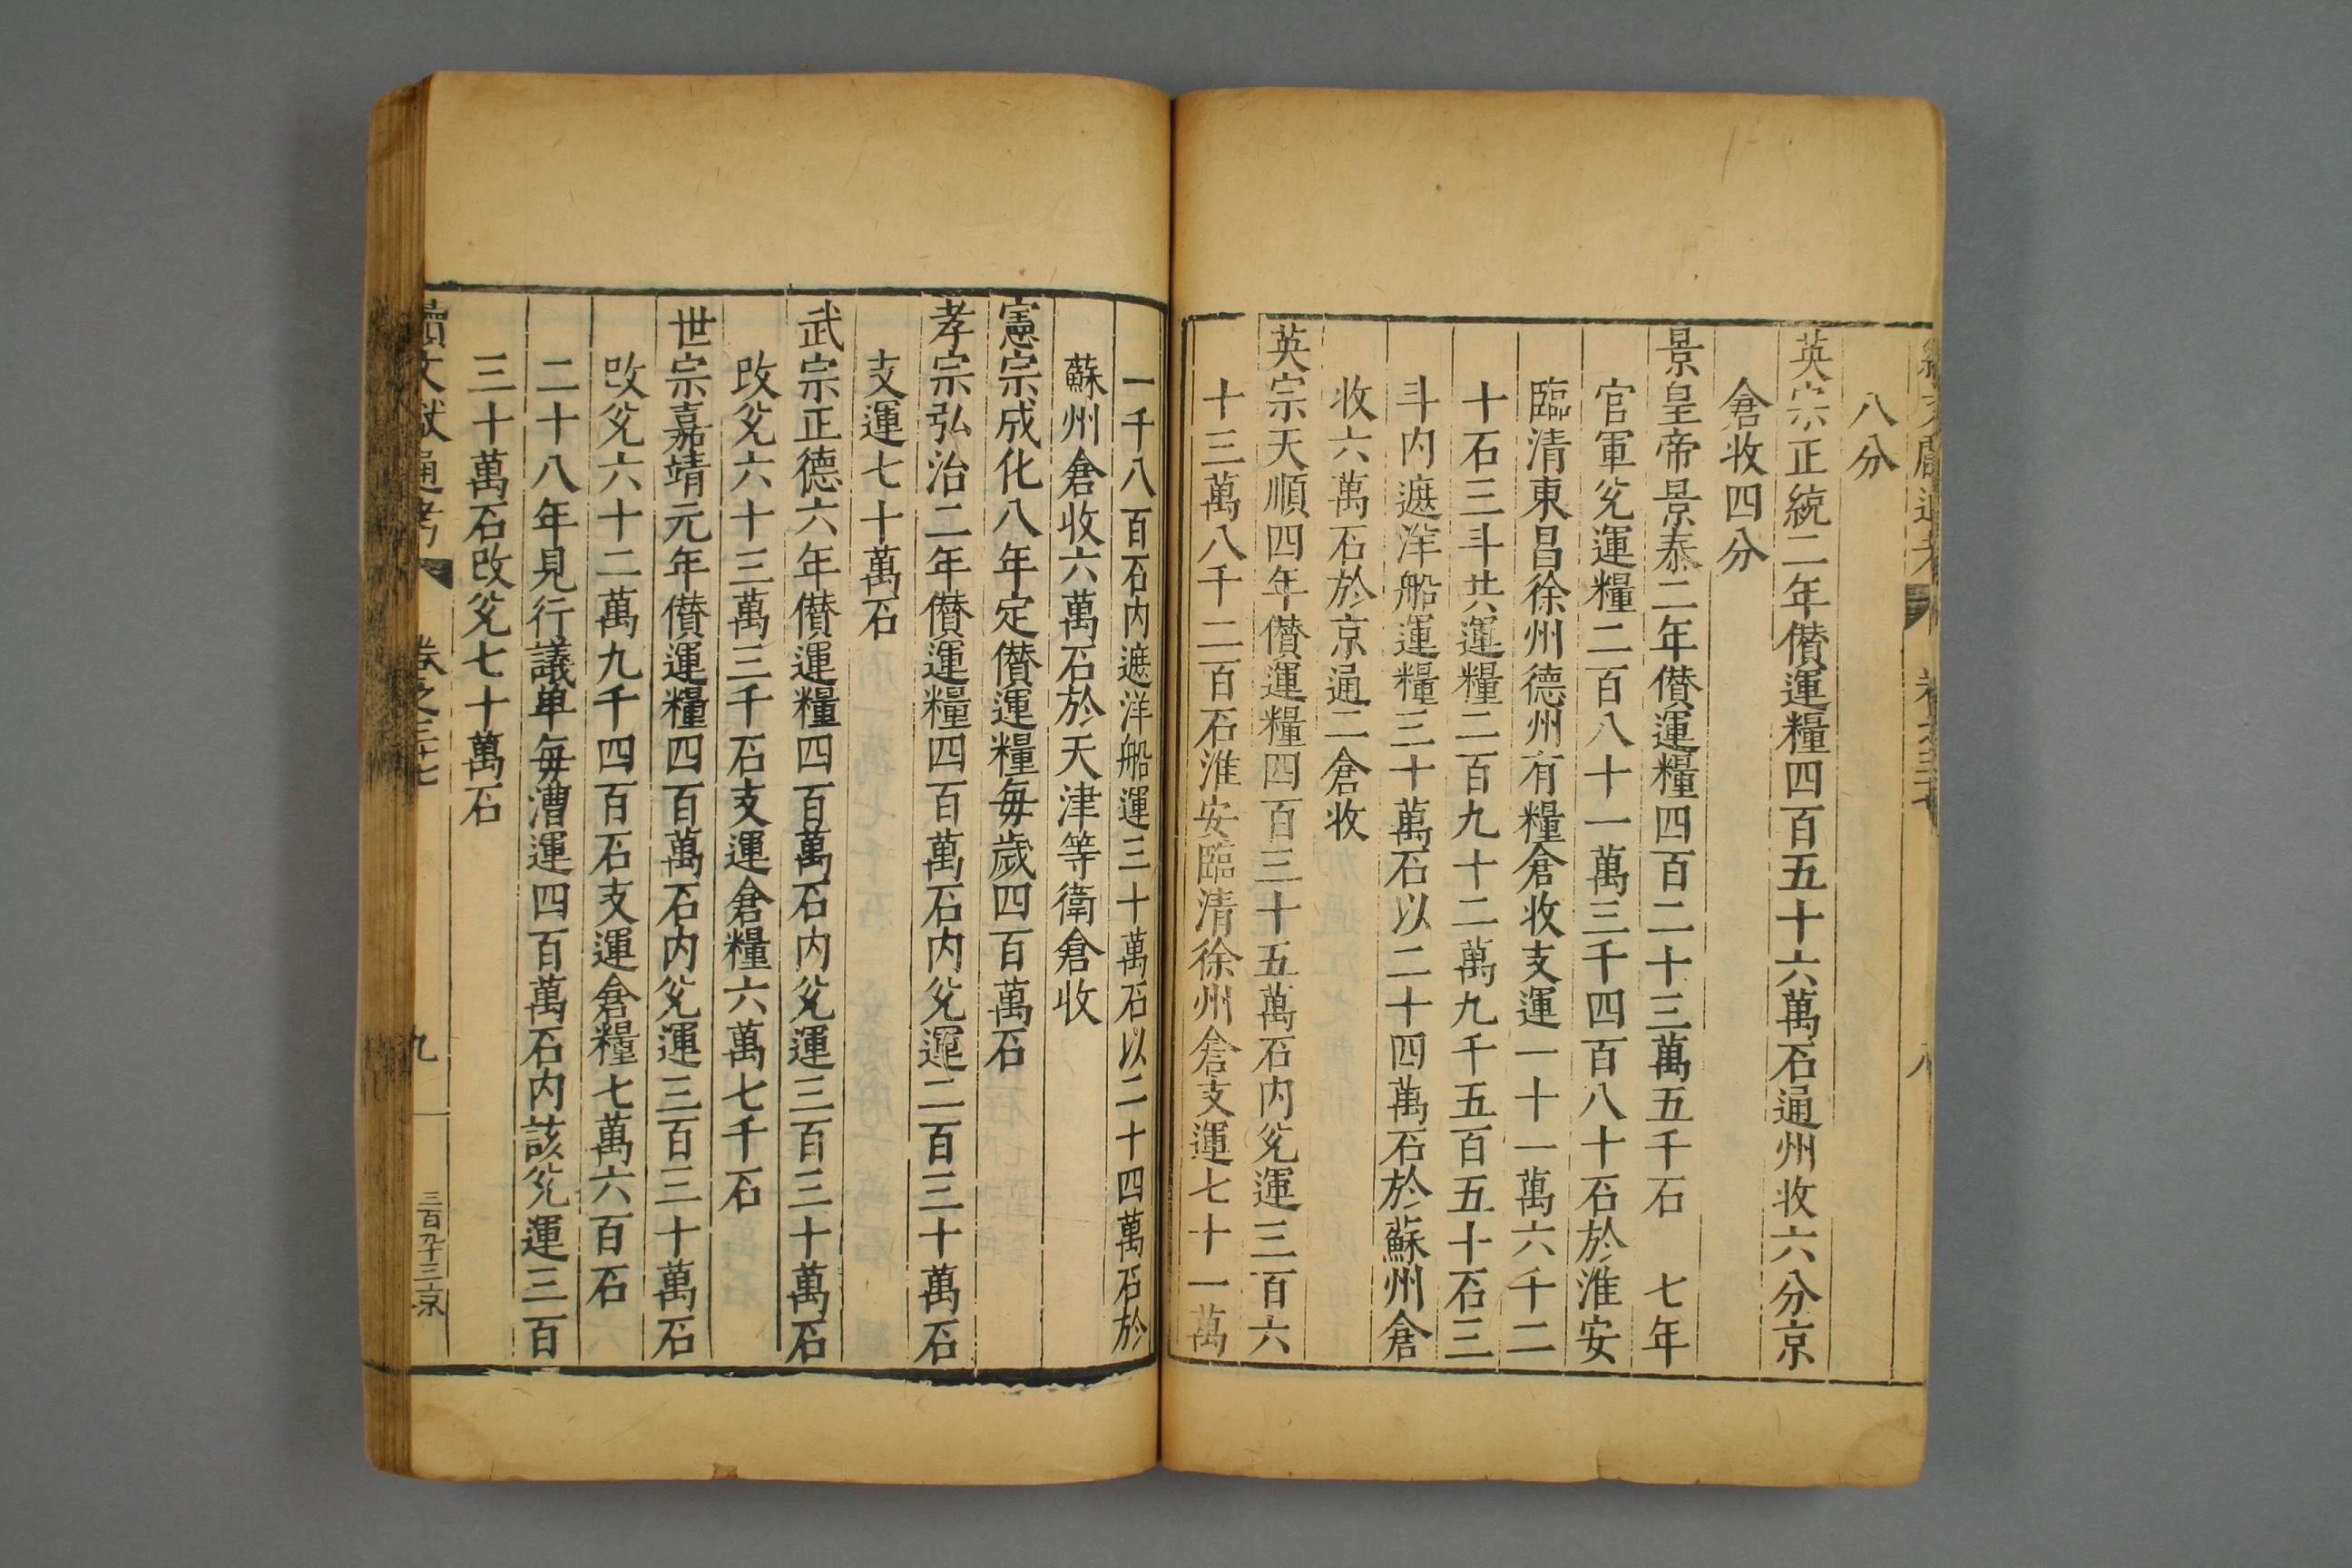 八分
英宗正統二年儹運糧四百五十六萬石通州收六分京
倉收四分
景皇帝景泰二年儹運糧四百二十三萬五千石 七年
官軍兊運糧二百八十一萬三千四百八十石於淮安
臨清東昌徐州德州有糧倉收支運一十一萬六千二
十石三斗共運糧二百九十二萬九千五百五十石三
斗内遮洋船運糧三十萬石以二十四萬石於蘇州倉
收六萬石於京通二倉收
英宗天順四年儹運糧四百三十五萬石内兊運三百六
十三萬八千二百石淮安臨清徐州倉支運七十一萬
一千八百石内遮洋船運三十萬石以二十四萬石於
蘇州倉收六萬石於天津等衛倉收
憲宗成化八年定儹運糧每歲四百萬石
孝宗弘治二年儹運糧四百萬石内兊運二百三十萬石
支運七十萬石
武宗正德六年儹運糧四百萬石内兊運三百三十萬石
改兊六十三萬三千石支運倉糧六萬七千石
世宗嘉靖元年儹運糧四百萬石内兊運三百三十萬石
改兊六十二萬九千四百石支運倉糧七萬六百石
二十八年見行議单每漕運四百萬石内該兊運三百
三十萬石改兊七十萬石
續文獻通考 卷之三十七 九 三百九十三京